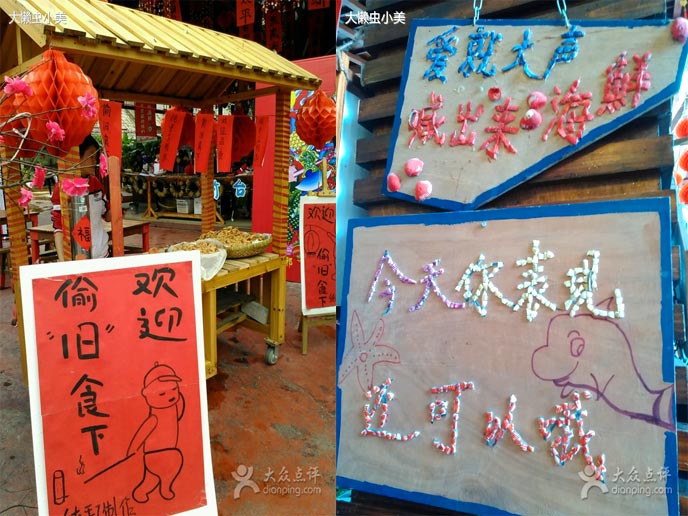 大懒虫小美
欢迎
偷"旧"食下
制作
欢迎
偷"旧"食下
福
台
大众点评
dianping.com
大懒虫小美
爱就大声
喊出来 海鲜
今天你表现
还可以哦
大众点评
dianping.com